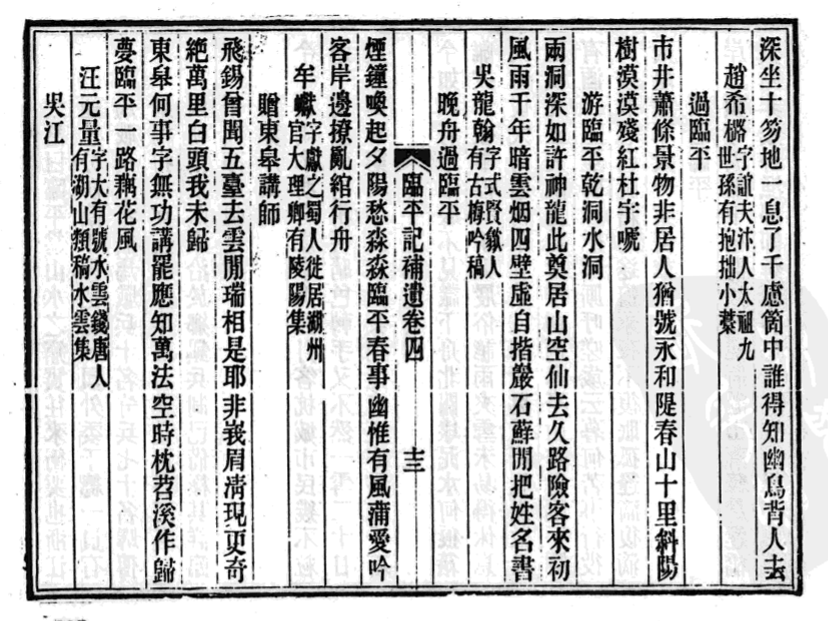 深坐十笏地　息了千慮箇中誰得知幽鳥背人去
趙希㯝字誼夫汴人太祖九
世孫有抱拙小藁
過臨平
市井蕭條景物非居人猶號永和隄春山十里斜陽
樹漠漠殘紅杜宇嗁
游臨平乾洞水洞
兩洞深如許神龍此奠居山空仙去久路險客來初
風雨千年暗雲烟四壁虛自揩巖石蘚閒把姓名書
吳龍翰字式賢歙人
有古梅吟稿
晚舟過臨平
煙鐘喚起夕陽愁淼淼臨平春事幽惟有風蒲愛吟
臨平記補遺卷四　十三
客岸邊撩亂綰行舟
牟巘字獻之蜀人徙居湖州
官大理卿有陵陽集
贈東臯講師
飛錫曾聞五臺去雲閒瑞相是耶非峩眉清現更奇
絶萬里白頭我未歸
東臯何事字無功講罷應知萬法空時枕苕溪作歸
夢臨平一路藕花風
汪元量字大有號水雲錢唐人
有湖山類稿水雲集
吳江